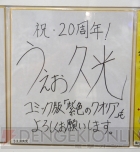 祝・20周年!
うえお久光
コミック版「紫色のクオリア」も
よろしくお願いします
DENGEKIONLINE